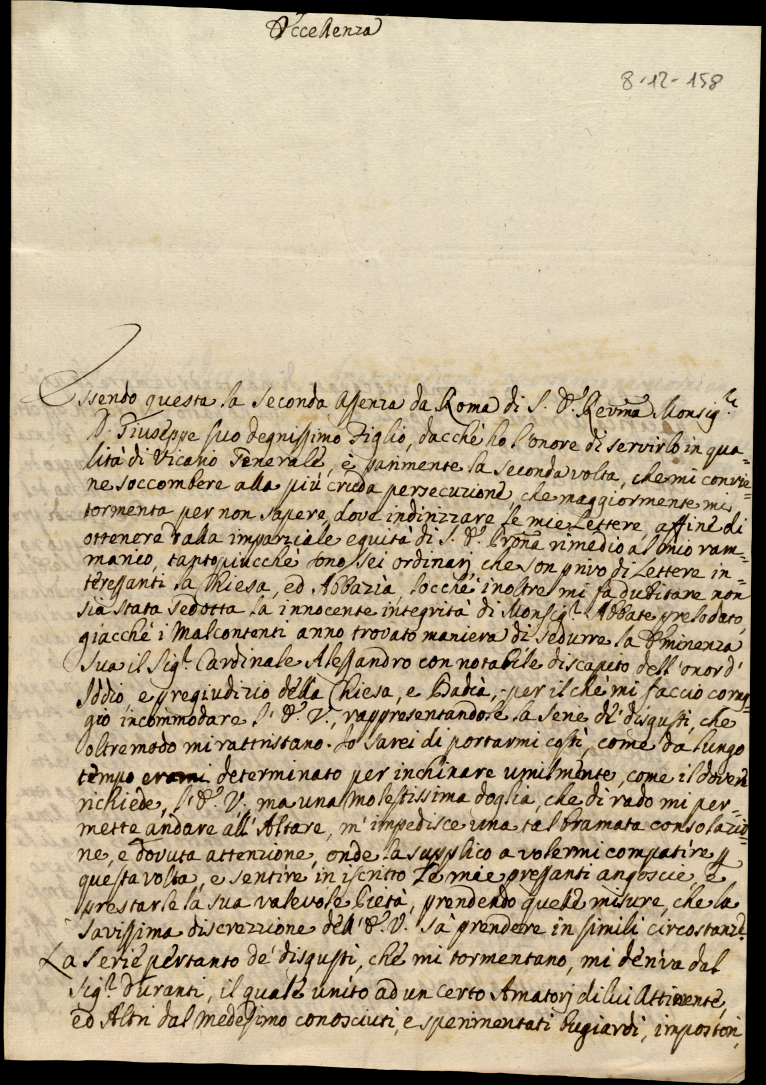 Eccellenza
8-12-158
Essendo questa la seconda assenza da Roma di S. E. Revma Monsig.re
D. Giuseppe suo degnissimo Figlio, dacchè ho l'onore di servirlo in qua=
lità di Vicario Generale, è parimente la seconda volta, che mi convie=
ne soccombere alla più cruda persecuzione, che maggiormente mi
tormenta per non sapere, dove indirizzare le mie Lettere, affine di
ottenere dalla imparziale equità di S. E. Prona rimedio al mio ram=
marico, tantopiucchè sono sei ordinarj, che son privo di Lettere in=
teressanti la Chiesa, ed Abbazia, locchè inoltre mi fa dubitare non
sia stata sedotta la innocente integrità di Monsig.r Abbate prelodato,
giacchè i Malcontenti anno trovato maniera di sedurre la Eminenza
Sua il Sig.r Cardinale Alessandro con notabile discapito dell'onor d'
Iddio e pregiudizio della Chiesa, e Badia, per il che mi faccio corag=
gio incommodare l'E. V., rappresentandole la serie de' disgusti, che
oltremodo mi rattristano. Io sarei di portarmi costì, come da lungo
tempo erami determinato per inchinare umilmente, come il dovere
richiede, l'E. V. ma una molestissima doglia, che di rado mi per=
mette andare all'Altare, m'impedisce una tal bramata consolazio=
ne, e dovuta attenzione, onde la supplico a volermi compatire p
questa volta, e sentire in iscritto le mie pressanti angoscie, e
prestarle la sua valevole Pietà, prendendo quelle misure, che la
savissima discrezzione dell'E. V. sà prendere in simili circostanze.
La serie pertanto de' disgusti, che mi tormentano, mi deriva dal
Sig.r Duranti, il quale unito ad un certo Amatorj di lui Attinente,
ed Altri dal medesimo conosciuti, e sperimentati bugiardi, impostori,